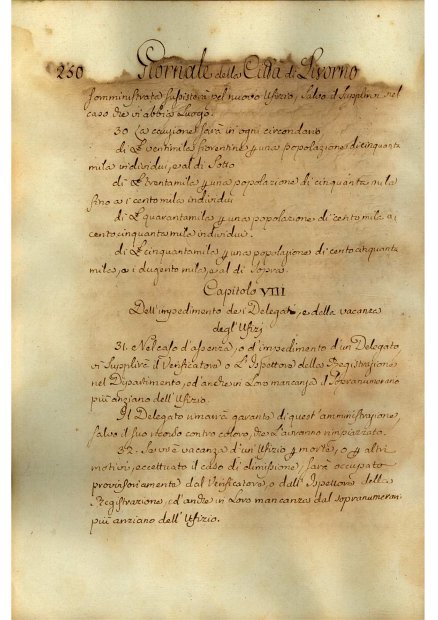 250 Giornale della Città di Livorno
somministrata sussisterà pel nuovo Ufizio, salvo il supplirvi nel
caso che vi abbia luogo.
30. La cauzione sarà in ogni circondario
di £ ventimila fiorentine p una popolazione di cinquanta
mila individui, e al di sotto
di £ trentamila p una popolazione di cinquanta mila
fino a i cento mila individui
di £ quarantamila p una popolazione di cento mila ai
cento cinquanta mila individui.
di £ cinquantamila p una popolazione di cento cinquanta
mila, a i dugento mila, e al di sopra.
Capitolo VIII
Dell'impedimento dei Delegati, e della vacanza
degl'Ufizj
31. Nel caso d'assenza, o d'impedimento d'un Delegato
vi supplirà il Verificatore o l'Ispettore della Registrazione
nel Dipartimento, ed anche in loro mancanza il Sopranumerario
più anziano dell'Ufizio.
Il Delegato rimarrà garante di quest'amministrazione,
salvo il suo ricorso contro coloro, che l'avranno rimpiazzato.
32. Se vi è vacanza d'un'Ufizio p morte, o p altri
motivi, eccettuato il caso di dimissione, sarà occupato
provvisoriamente dal Verificatore, o dall'Ispettore della
Registrazione, ed anche in loro mancanza dal sopranumerario
più anziano dell'Ufizio.